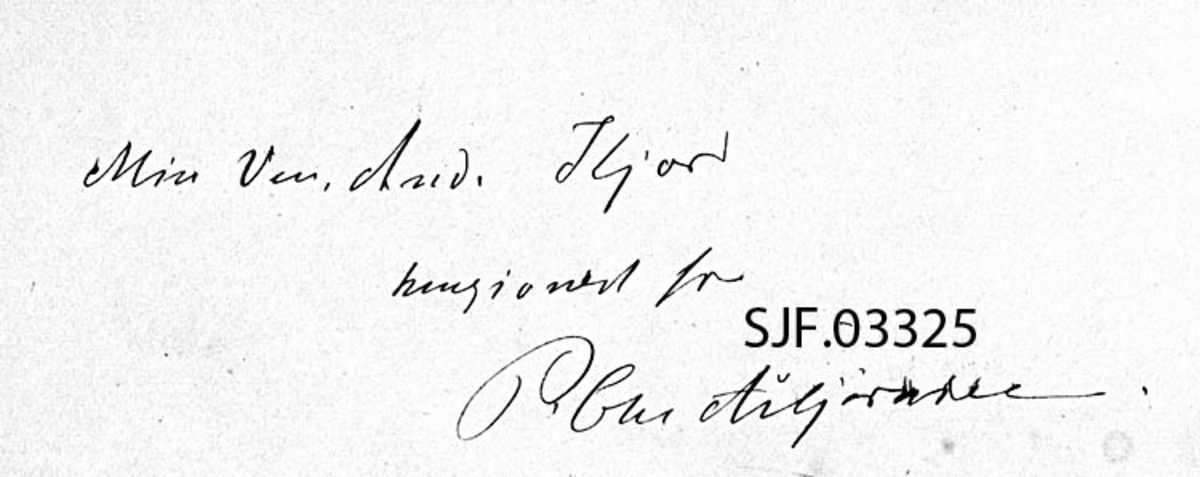 Min Ven, And. Hjord
hengivenst fra
SJF.03325
P. Chr Asbjørnsen.